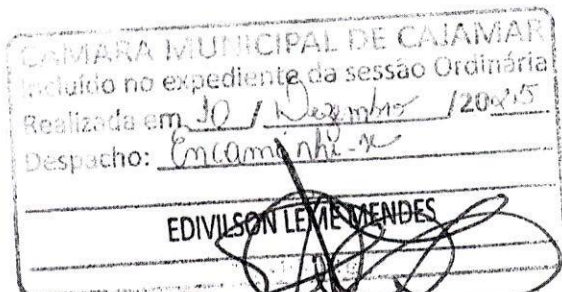 CÂMARA MUNICIPAL DE CAJAMAR
Incluído no expediente da sessão Ordinária
Realizada em 10 / Dezembro /2025
Despacho: Encaminhe-se
EDIVILSON LEME MENDES